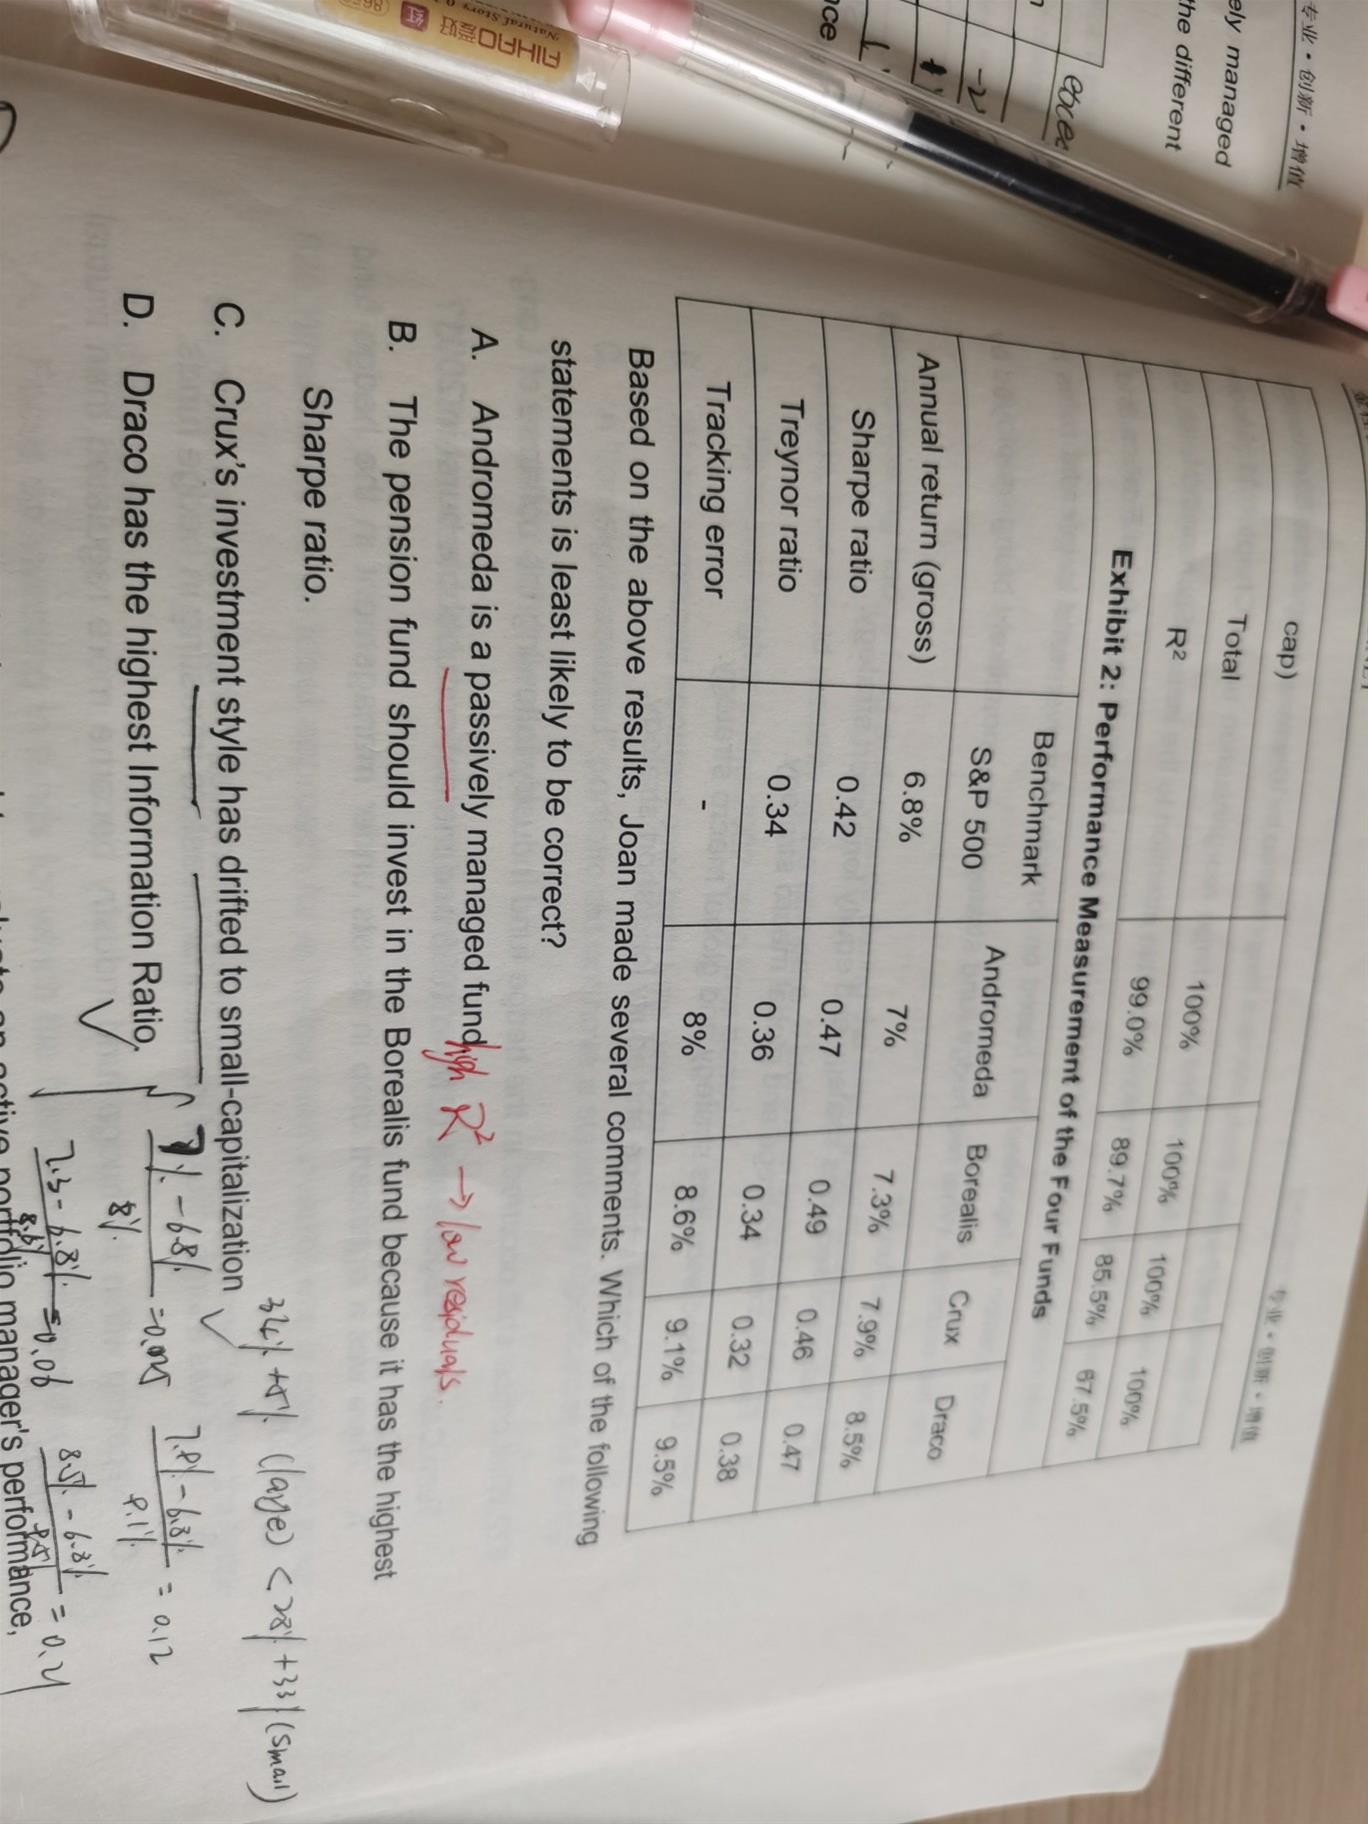 专业·创新·增值
ely managed
the different
exce
nce
Natural Story
AIHAO
cap)
Total 100% 100% 100% 100%
R² 99.0% 89.7% 85.5% 67.5%
专业·创新·增值
Exhibit 2: Performance Measurement of the Four Funds
Benchmark
S&P 500 Andromeda Borealis Crux Draco
Annual return (gross) 6.8% 7% 7.3% 7.9% 8.5%
Sharpe ratio 0.42 0.47 0.49 0.46 0.47
Treynor ratio 0.34 0.36 0.34 0.32 0.38
Tracking error - 8% 8.6% 9.1% 9.5%
Based on the above results, Joan made several comments. Which of the following
statements is least likely to be correct?
A. Andromeda is a passively managed fund
high R² → low residuals.
B. The pension fund should invest in the Borealis fund because it has the highest
Sharpe ratio.
C. Crux's investment style has drifted to small-capitalization
34% + 5% (large) < 28% + 33% (small)
D. Draco has the highest Information Ratio.
7% - 6.8% / 8% = 0.025
7.9% - 6.8% / 9.1% = 0.12
7.3 - 6.8% / 8.6% = 0.06
8.5% - 6.8% / 9.5% =
active portfolio manager's performance,